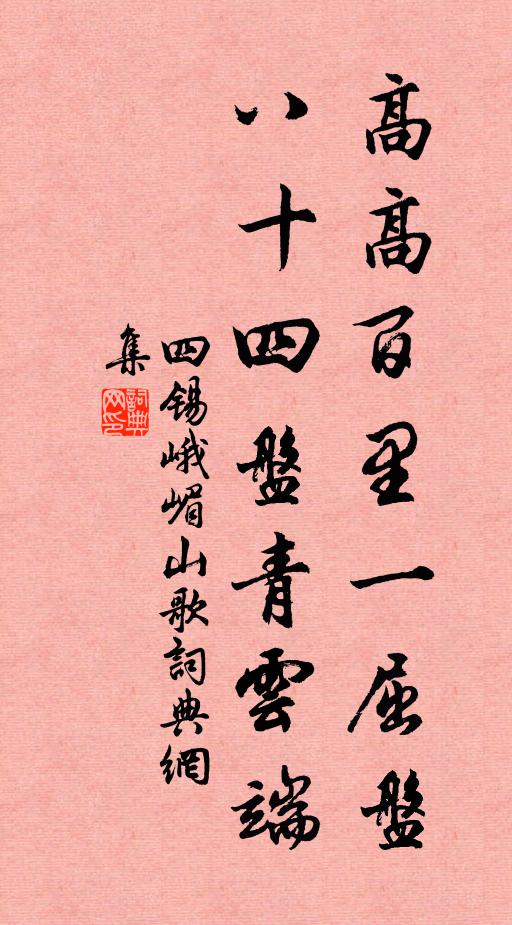 高高百里一屈盤
八十四盤青雲端
四錫峨嵋山歌詞典網
集
詞典
网印